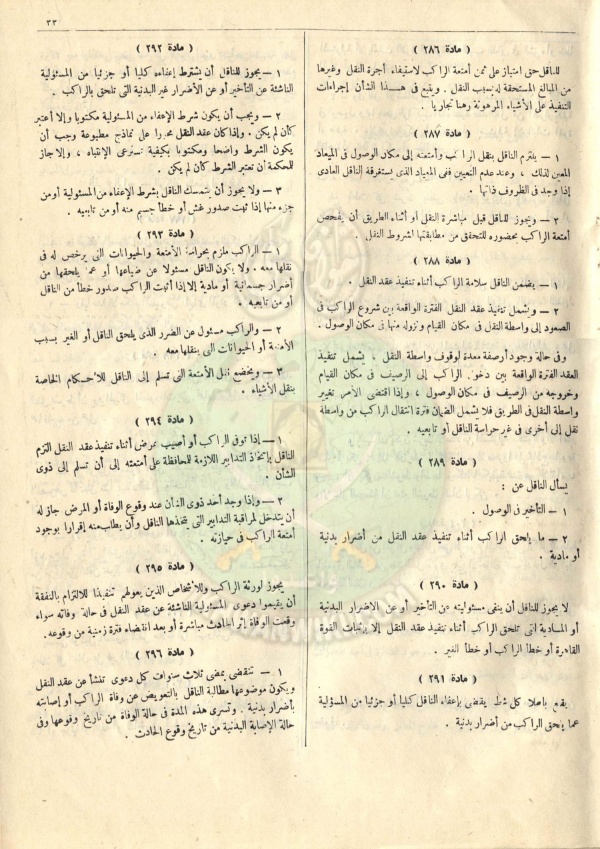 ٣٣
( مادة ٢٨٦ )
للناقل حق امتياز على ثمن أمتعة الراكب لاستيفاء أجرة النقل وغيرها
من المبالغ المستحقة له بسبب النقل . ويتبع فى هـذا الشأن إجراءات
التنفيذ على الأشياء المرهونة رهنا تجاريا .
( مادة ٢٨٧ )
١ – يلتزم الناقل بنقل الراكب وأمتعته إلى مكان الوصول فى الميعاد
المعين لذلك ، وعند عدم التعيين ففى الميعاد الذى يستغرقه الناقل العادى
إذا وجد فى الظروف ذاتها .
٢ – ويجوز للناقل قبل مباشرة النقل أو أثناء الطريق أن يفحص
أمتعة الراكب بحضوره للتحقق من مطابقتها لشروط النقل .
( مادة ٢٨٨ )
١ – يضمن الناقل سلامة الراكب أثناء تنفيذ عقد النقل .
٢ – ويشمل تنفيذ عقد النقل الفترة الواقعة بين شروع الراكب فى
الصعود إلى واسطة النقل فى مكان القيام ونزوله منها فى مكان الوصول .
وفى حالة وجود أرصفة معدة لوقوف واسطة النقل ، يشمل تنفيذ
العقد الفترة الواقعة بين دخول الراكب إلى الرصيف فى مكان القيام
وخروجه من الرصيف فى مكان الوصول ، وإذا اقتضى الأمر تغيير
واسطة النقل فى الطريق فلا يشمل الضمان فترة انتقال الراكب من واسطة
نقل إلى أخرى فى غير حراسة الناقل أو تابعيه .
( مادة ٢٨٩ )
يسأل الناقل عن :
١ – التأخير فى الوصول .
٢ – ما يلحق الراكب أثناء تنفيذ عقد النقل من أضرار بدنية
أو مادية .
( مادة ٢٩٠ )
لا يجوز للناقل أن ينفى مسئوليته عن التأخير أو عن الاضرار البدنية
أو المادية التى تلحق الراكب أثناء تنفيذ عقد النقل إلا بإثبات القوة
القاهرة أو خطأ الراكب أو خطأ الغير .
( مادة ٢٩١ )
يقع باطلا كل شرط يقضى بإعفاء الناقل كليا أو جزئيا من المسؤلية
عما يلحق الراكب من أضرار بدنية .
( مادة ٢٩٢ )
١ – يجوز للناقل أن يشترط إعفاءه كليا أو جزئيا من المسئولية
الناشئة عن التأخير أو عن الأضرار غير البدنية التى تلحق بالراكب .
٢ – ويجب أن يكون شرط الإعفاء من المسئولية مكتوبا وإلا أعتبر
كأن لم يكن . وإذا كان عقد النقل محررا على نماذج مطبوعة وجب أن
يكون الشرط واضحا ومكتوبا بكيفية تسترعى الإنتباه ، وإلا جاز
للمحكمة أن تعتبر الشرط كأن لم يكن .
٣ – ولا يجوز أن يتمسك الناقل بشرط الإعفاء من المسئولية أو من
جزء منها إذا ثبت صدور غش أو خطأ جسيم منه أو من تابعيه .
( مادة ٢٩٣ )
١ – الراكب ملزم بحراسة الأمتعة والحيوانات التى يرخص له فى
نقلها معه . ولا يكون الناقل مسئولا عن ضياعها أو عما يلحقها من
أضرار جسمانية أو مادية إلا إذا أثبت الراكب صدور خطأ من الناقل
أو من تابعيه .
٢ – والراكب مسئول عن الضرر الذى يلحق الناقل أو الغير بسبب
الأمتعة أو الحيوانات التى ينقلها معه .
٣ – ويخضع نقل الأمتعة التى تسلم إلى الناقل للأحكام الخاصة
بنقل الأشياء .
( مادة ٢٩٤ )
١ – إذا توفى الراكب أو أصيب بمرض أثناء تنفيذ عقد النقل التزم
الناقل بإتخاذ التدابير اللازمة للمحافظة على أمتعته إلى أن تسلم إلى ذوى
الشأن .
٢ – وإذا وجد أحد ذوى الشأن عند وقوع الوفاة أو المرض جاز له
أن يتدخل لمراقبة التدابير التى يتخذها الناقل وأن يطلب منه إقرارا بوجود
أمتعة الراكب فى حيازته .
( مادة ٢٩٥ )
يجوز لورثة الراكب وللأشخاص الذين يعولهم تنفيذا للالتزام بالنفقة
أن يقيموا دعوى المسئولية الناشئة عن عقد النقل فى حالة وفاته سواء
وقعت الوفاة إثر الحادث مباشرة أو بعد انقضاء فترة زمنية من وقوعه .
( مادة ٢٩٦ )
١ – تنقضى بمضى ثلاث سنوات كل دعوى تنشأ عن عقد النقل
ويكون موضوعها مطالبة الناقل بالتعويض عن وفاة الراكب أو إصابته
بأضرار بدنية . وتسرى هذه المدة فى حالة الوفاة من تاريخ وقوعها وفى
حالة الإصابة البدنية من تاريخ وقوع الحادث .